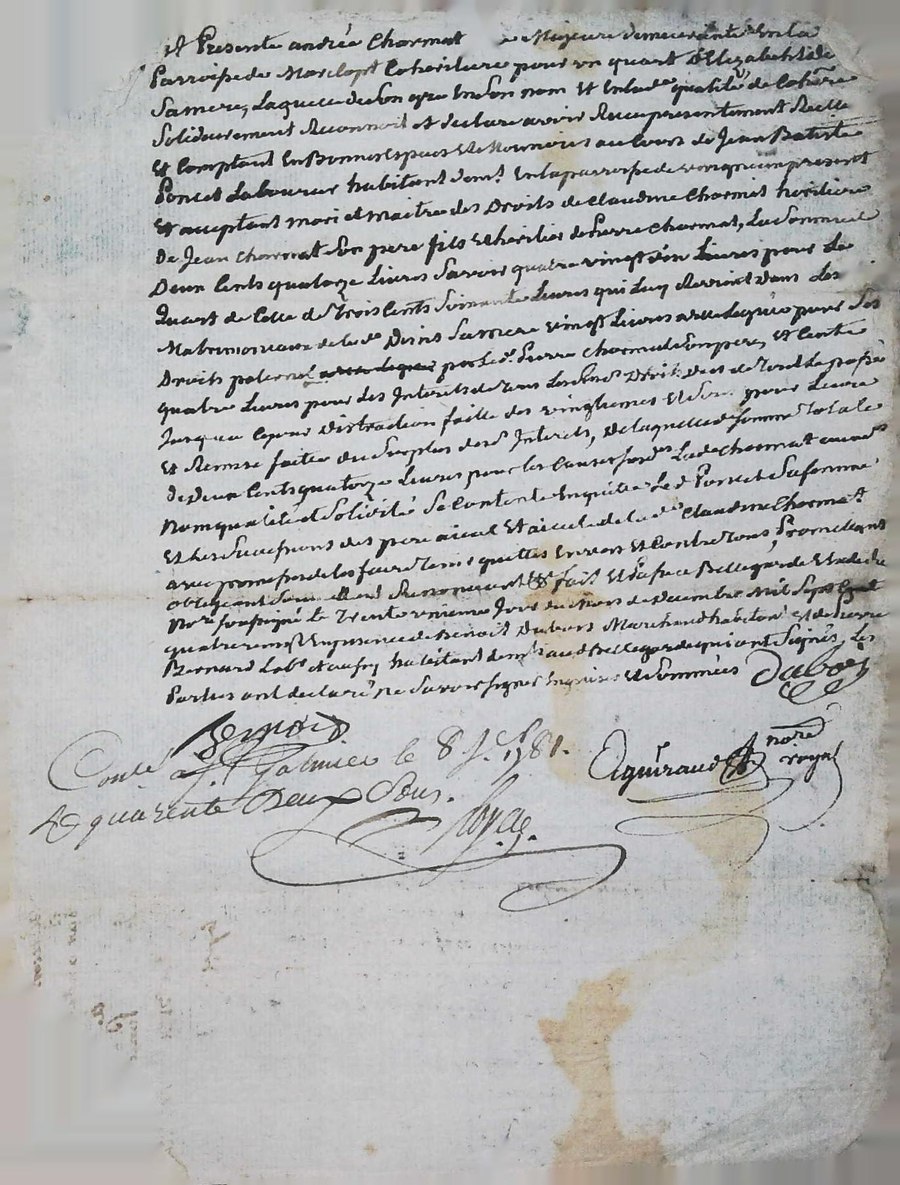 Et Presente andrée Charmat Majeure demeurante En la
Parroisse de Marclopt Coheritiere pour un quart d'Elizabeth
Sa mere, Laquelle de Son gré En Son nom Et En lad. qualité de Cohere
Solidairement Reconnoit Et declare avoir Recu presentement Reelle
Et Comptant En Bonnes Especes Et Monnoies au Cours de Jean Batiste
Poncet Laboureur habitant dem.t En la parroisse de present
Et acceptant mari et maitre des Droits de Claudine Charmat heritiere
De Jean Charmat Son pere fils Et heritier de Pierre Charmat, La Somme de
Deux Cents quatorze Livres Savoir quatre vingt dix Livres pour Le
Quart de Celle de Trois Cents Soixante Livres qui Luy Revient dans Les
Matrimoniaux de la d.e Sa mere vingt Livres a elle leguées pour Ses
Droits paternels par Le d. Pierre Charmat Son pere, Et Cent
quatre Livres pour des Interets de Tous Les droits du passé
Jusqu'a Ce jour distraction faitte des vingtiemes
Et Remise faitte du Surplus des d. Interets, De laquelle d. Somme Totale
de Deux Cents quatorze Livres pour les Causes Lad. Charmat aux d.
Nom qualité et Solidité Se Contente En quitte Le d. Poncet Sa femme
Et Les Successions des pere aieul Et aieule de la d.e Claudine Charmat
avec promesse de les faire Tenir quittes Envers Et Contre Tous, Promettant
obligeant Soumettant Renonceant fait Et Passé a Bellegarde Etude de
No.re Soussigné Le Trente unieme Jour du Mois de Decembre Mil Sept Cent
quatre vingt En presence de Benoit Dubois Marchand habitant Et de Pierre
Bernard Lab.r habitant aud. Bellegarde qui ont Signés, Les
Parties ont declaré ne Savoir Signer Enquises Et Sommées Dubois
Bernard
Conlé a St Galmier le 8 Jer 1781.
R quarente Deux Sous.
Aguiraud notre royal